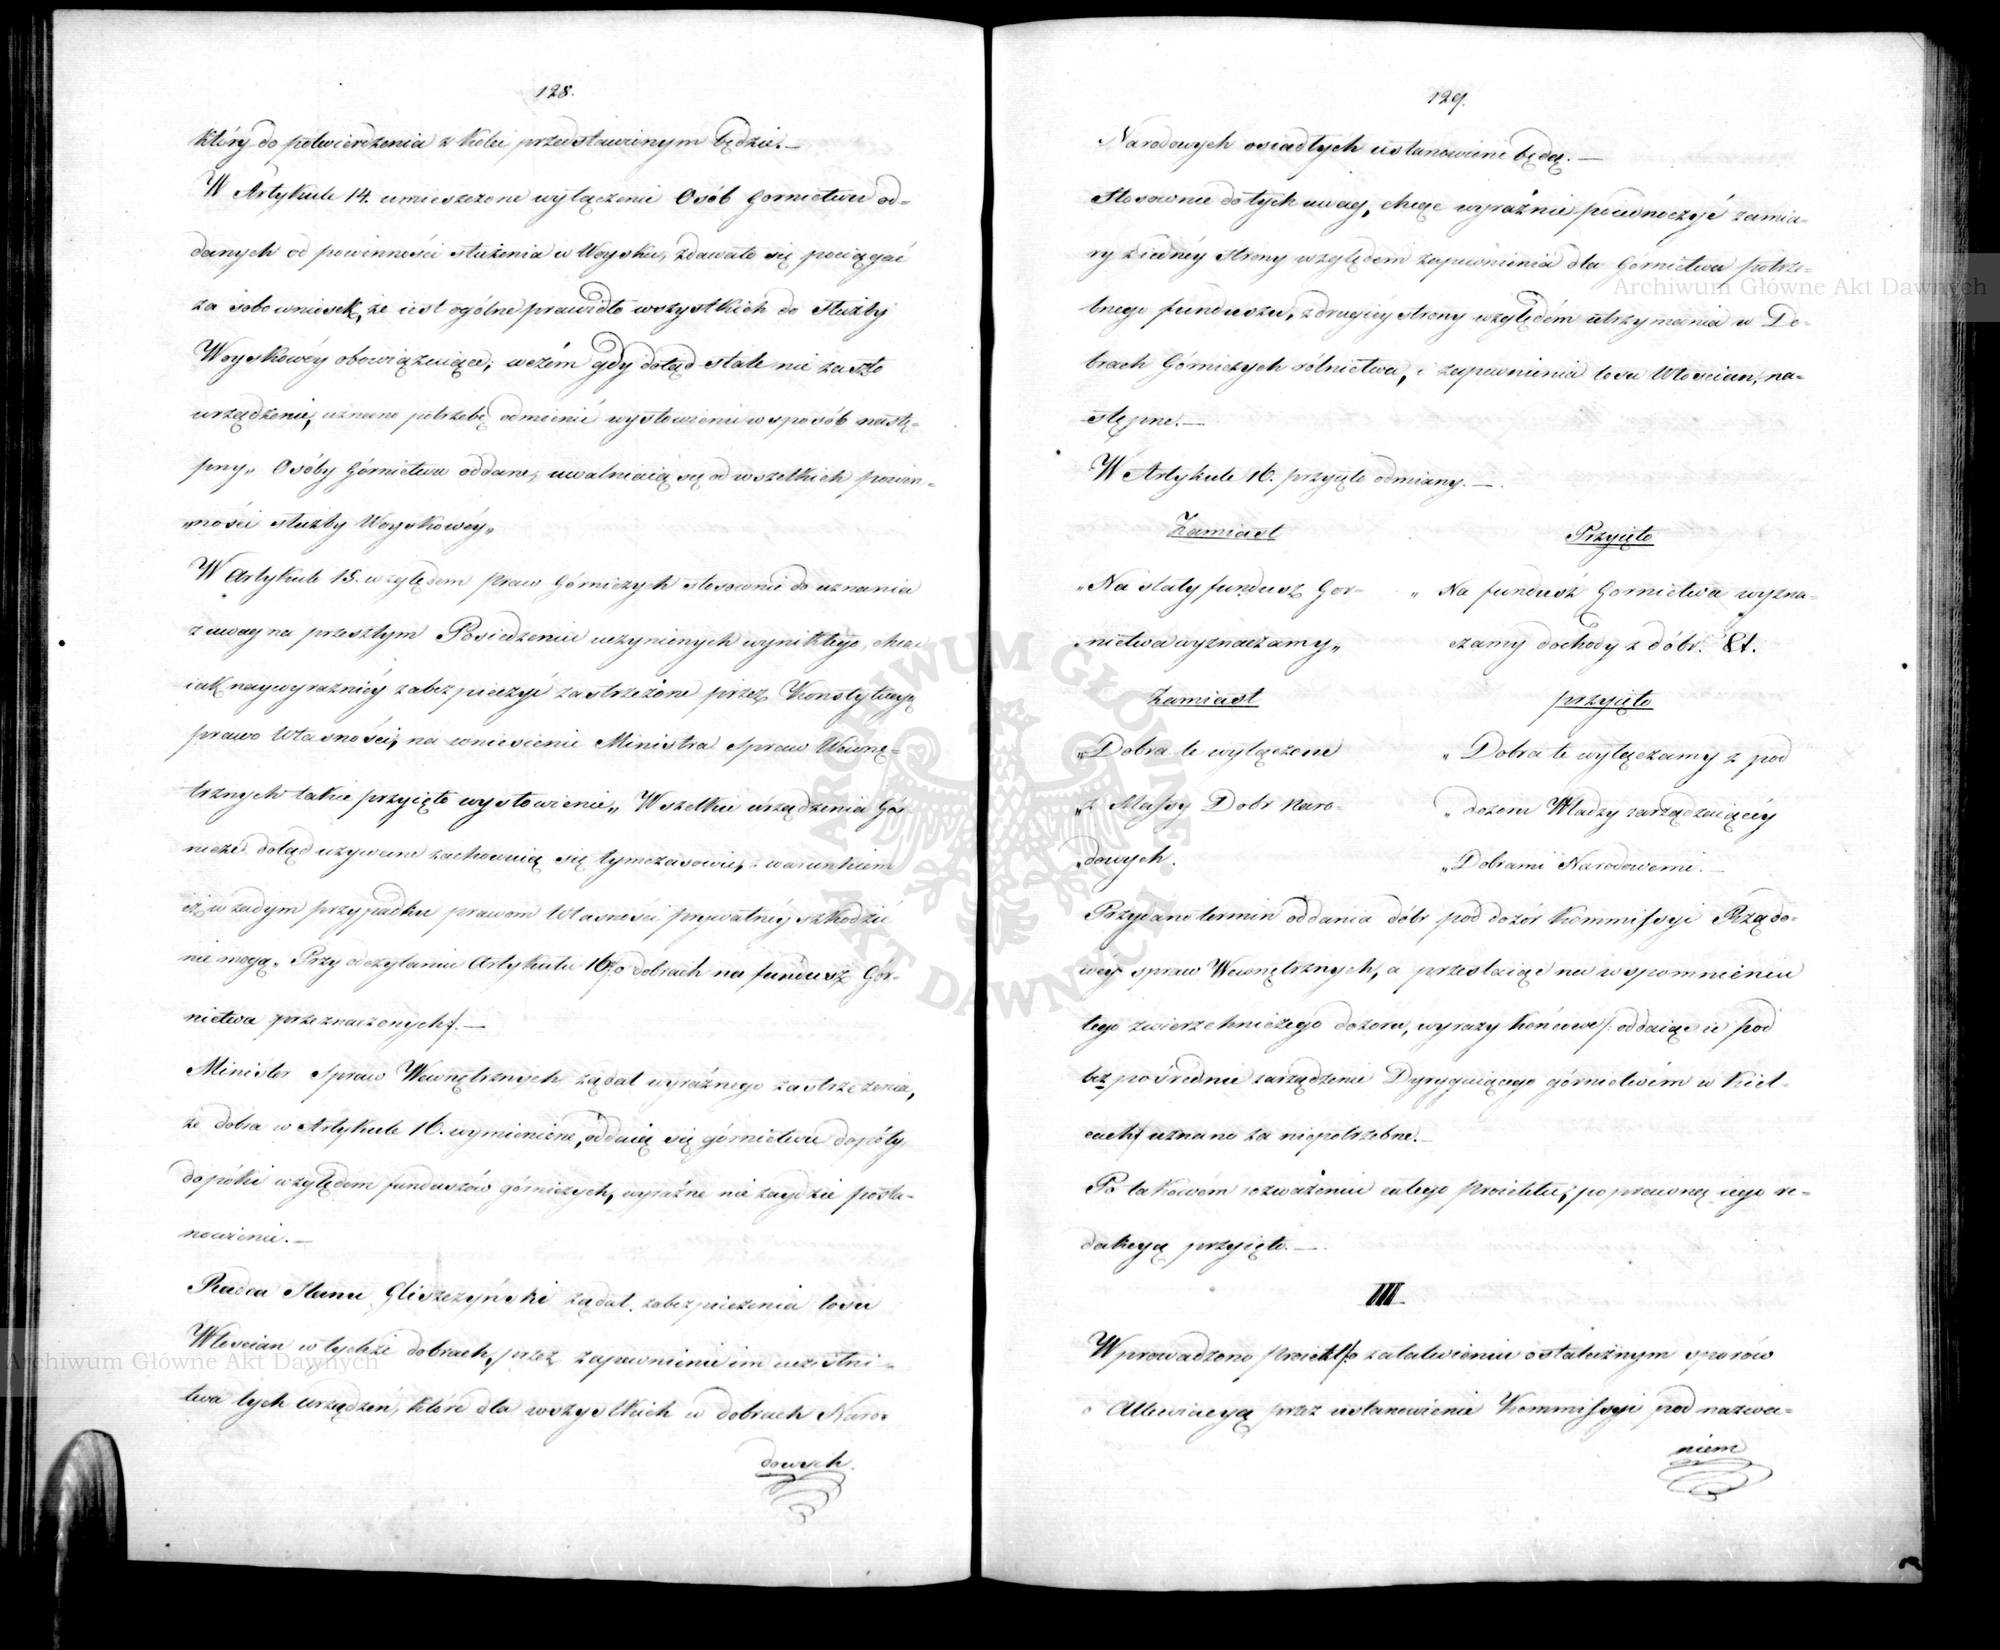 128.
który do potwierdzenia z kolei przedstawionym będzie. —
W Artykule 14. umieszczone wyłączenie Osób Gornictwu od-
danych od powinności służenia w Woysku, zdawało się pociągać
za sobą wniosek, że iest ogólne prawidło wszystkich do służby
Woyskowéy obowiązuiące; w czém gdy dotąd stałe nie zaszło
urządzenie, uznano potrzebę odmienić wysłowienie w sposób nastę-
pny „ Osóby Górnictwu oddane, uwalniaią się od wszelkich powin-
„ności służby Woyskowéy„
W Artykule 15. względem praw Górniczych stosownie do uznania
z uwag na przeszłym Posiedzeniu uczynionych wynikłego, chcąc
iak naywyraźniéy zabezpieczyć zastrzeżone przez Konstytucyą
prawo Własności, na wniesienie Ministra Spraw Wewnę-
trznych takie przyięto wysłowienie „ Wszelkie urządzenia Gór-
nicze dotąd używane zachowuią się tymczasowie, z warunkiem
iż w żadnym przypadku prawom Własności prywatnéy szkodzić
nie mogą„ Przy odczytaniu Artykułu 16. /o dobrach na fundusz Gór-
nictwa przeznaczonych/. —
Minister Spraw Wewnętrznych żądał wyraźnego zastrzeżenia,
że dobra w Artykule 16. wymienione, oddaią się górnictwu dopóty
dopóki względem funduszów górniczych, wyraźne nie zaydzie posta-
nowienie. —
Radca Stanu Gliszczyński żądał zabezpieczenia losu
Włościan w tychże dobrach, przez zapewnienie im uczestni-
ctwa tych urządzeń, które dla wszystkich w dobrach Naro-
dowych.
129.
Narodowych osiadłych ustanowione będą. —
Stosownie do tych uwag, chcąc wyraźnie poiednoczyć zamia-
ry z iednéy strony względem zapewnienia dla Górnictwa potrze-
bnego funduszu, z drugiéy strony względem utrzymania w Do-
brach Górniczych rólnictwa, i zapewnienia losu Włościan, na-
stępne. —
W Artykule 16. przyięto odmiany. —
Zamiast Przyięto
„Na stały fundusz Gor- „ Na fundusz Gornictwa wyzna-
„nictwa wyznaczamy„ czamy dochody z dóbr. &t.
Zamiast przyięto
„Dobra te wyłączone „ Dobra te wyłączamy z pod
„z Massy Dobr Naro- „ dozoru Władzy zarządzaiącéy
dowych. „Dobrami Narodowemi. —
Przydano termin oddania dóbr pod dozór Kommissyi Rządo-
wéy spraw Wewnętrznych, a przestaiąc na wspomnieniu
tego zwierzchniczego dozoru, wyrazy końcowe /: oddaiąc ie pod
bezpośrednie zarządzenie Dyryguiącego górnictwém w Kiel-
cach/ uznano za niepotrzebne. —
Po takowém rozważeniu całego Proiektu, poprawną iego re-
dakcyą przyięto. —
III.
Wprowadzono Proiekt /o załatwieniu ostatecznym sporów
o Alluwiacyą przez ustanowienie Kommissyi pod nazwa-
niem
Archiwum Główne Akt Dawnych
Archiwum Główne Akt Dawnych
ARCHIWUM GŁÓWNE AKT DAWNYCH